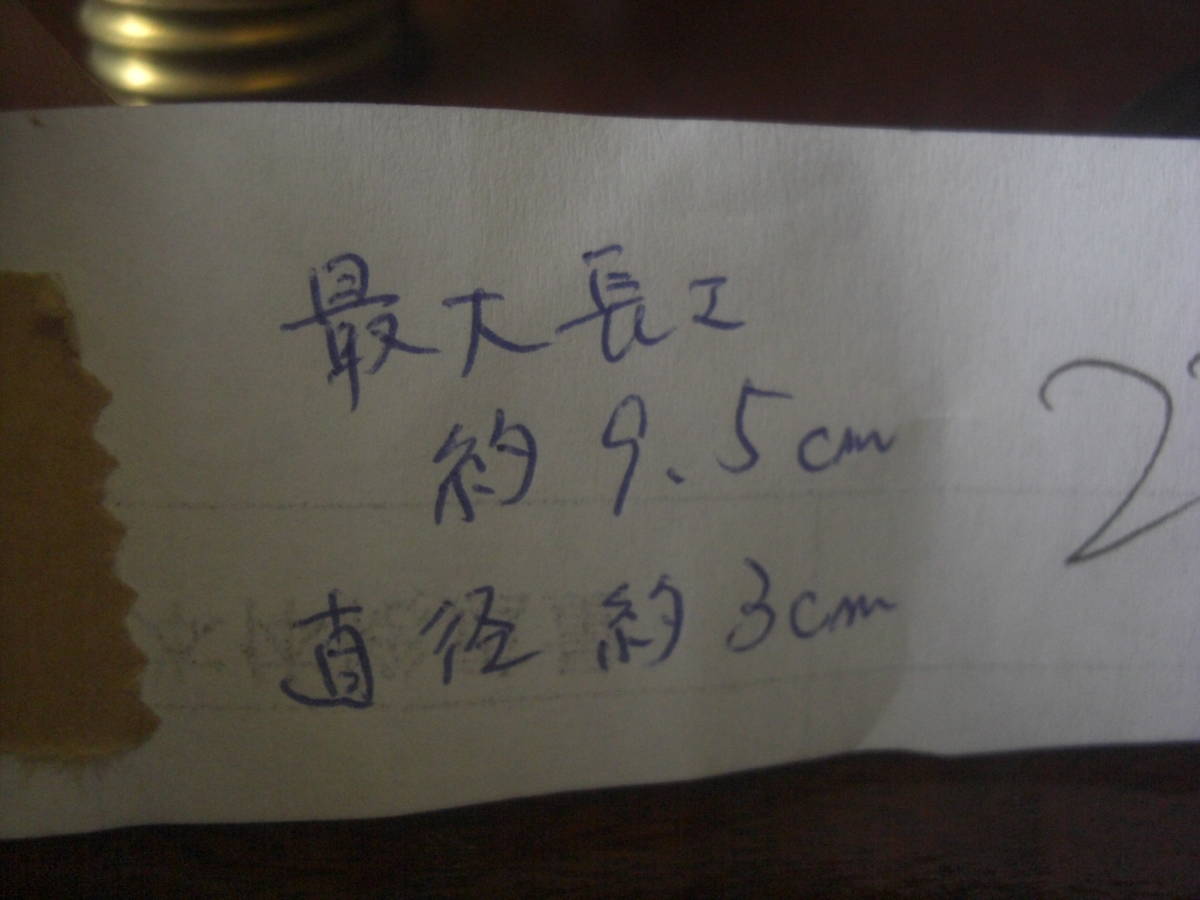 最大長エ
約 9.5cm
直径 約 3cm
2